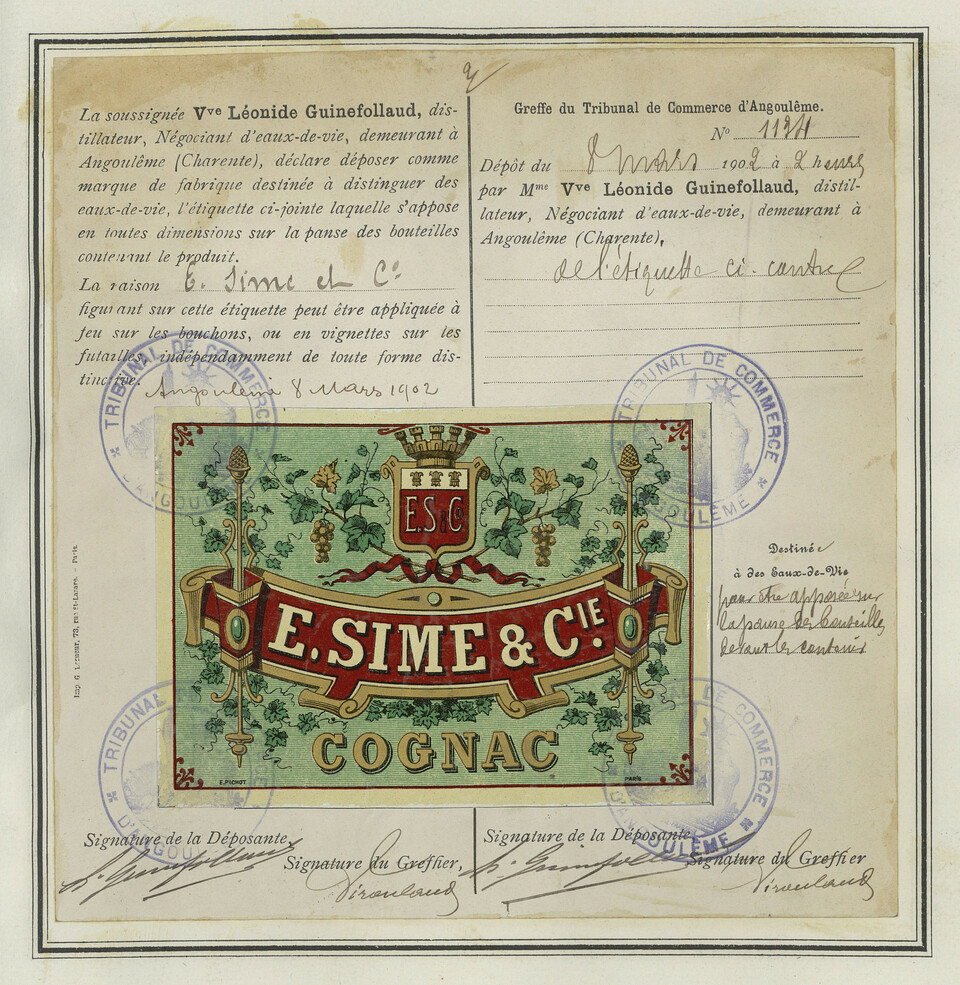 La soussignée Vve Léonide Guinefollaud, dis-
tillateur, Négociant d'eaux-de-vie, demeurant à
Angoulême (Charente), déclare déposer comme
marque de fabrique destinée à distinguer des
eaux-de-vie, l'étiquette ci-jointe laquelle s'appose
en toutes dimensions sur la panse des bouteilles
contenant le produit.
La raison E. Sime et Cº
figurant sur cette étiquette peut être appliquée à
feu sur les bouchons, ou en vignettes sur les
futailles, indépendamment de toute forme dis-
tinctive.
Angoulême 8 Mars 1902
Greffe du Tribunal de Commerce d'Angoulême.
Nº 1124
Dépôt du 8 mars 1902 à 2 heures
par Mme Vve Léonide Guinefollaud, distil-
lateur, Négociant d'eaux-de-vie, demeurant à
Angoulême (Charente),
de l'étiquette ci-contre
TRIBUNAL DE COMMERCE
D'ANGOULÊME
TRIBUNAL DE COMMERCE
D'ANGOULÊME
E.S&Co
E. SIME & CIE
COGNAC
E. PICHOT
PARIS
Destinée
à des Eaux-de-Vie
pour être apposée sur
la panse des bouteilles
Imp. G. 73, rue St-Lazare. — Paris.
TRIBUNAL DE COMMERCE
D'ANGOULÊME
TRIBUNAL DE COMMERCE
D'ANGOULÊME
Signature de la Déposante,
Signature du Greffier,
Signature de la Déposante
Signature du Greffier